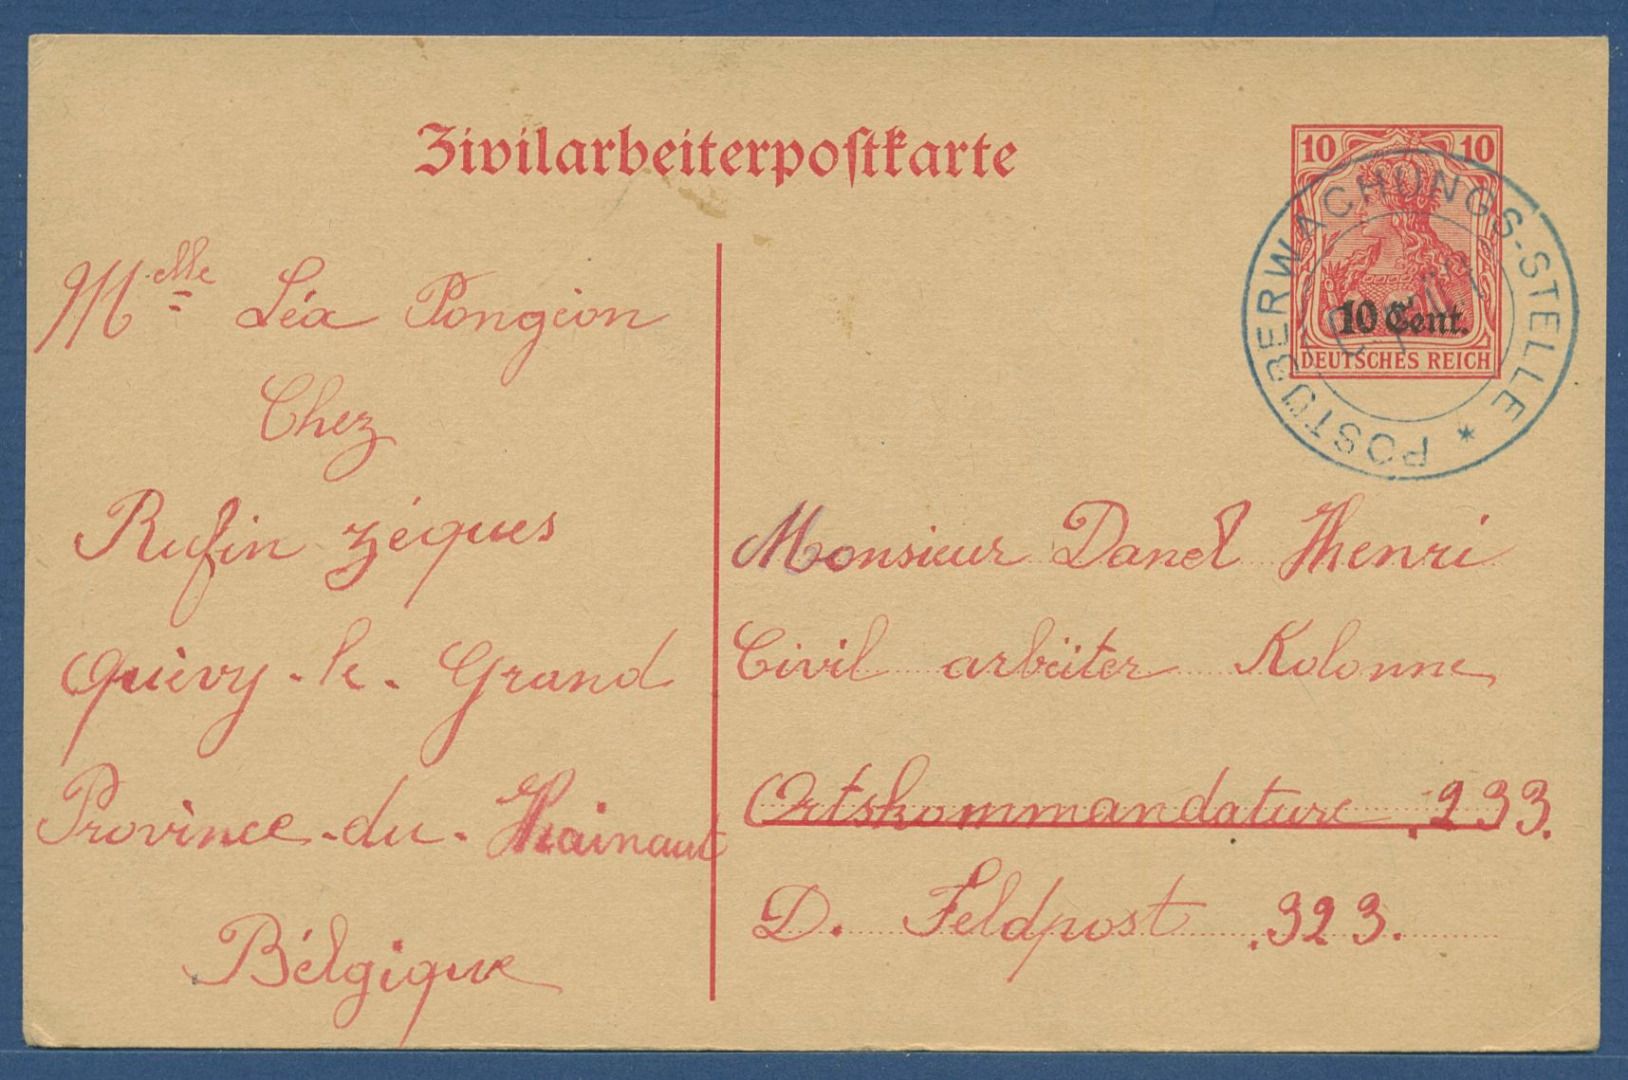 Zivilarbeiterpostkarte
10 10
10 Cent.
DEUTSCHES REICH
POSTÜBERWACHUNGS-STELLE *
Melle Léa Pongion
Chez
Rufin Zéques
Quévy-le-Grand
Province-du-Hainaut
Bélgique
Monsieur Danel Henri
Civil arbeiter Kolonne
Ortskommandature .233.
D. Feldpost .323.